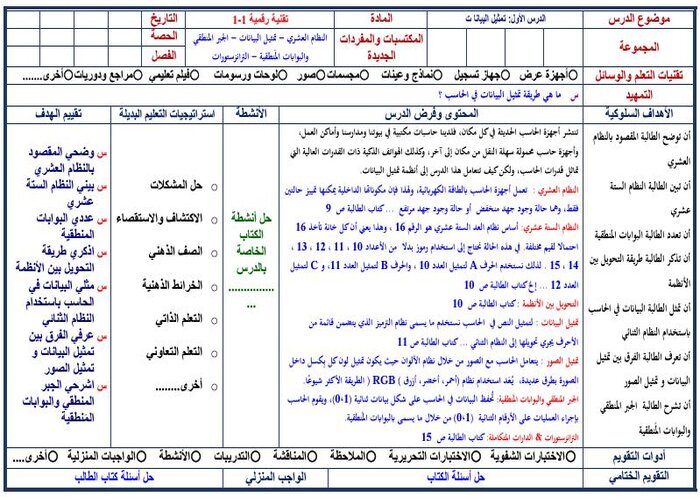 موضوع الدرس
الدرس الأول: تمثيل البيانا ت
المادة
تقنية رقمية 1-1
التاريخ
المجموعة
المكتسبات والمفردات الجديدة
النظام العشري – تمثيل البيانات – الجبر المنطقي
والبوابات المنطقية – الترانزستورات
الحصة
الفصل
تقنيات التعلم والوسائل
أجهزة عرض
جهاز تسجيل
نماذج وعينات
مجسمات
صور
لوحات ورسومات
فيلم تعليمي
مراجع ودوريات
أخرى.......
التمهيد
س ما هي طريقة تمثيل البيانات في الحاسب ؟
الأهداف السلوكية
المحتوى وفرض الدرس
الأنشطة
استراتيجيات التعليم البديلة
تقييم الهدف
أن توضح الطالبة المقصود بالنظام
العشري
أن تبين الطالبة النظام الستة
عشري
أن تعدد الطالبة البوابات المنطقية
أن تذكر الطالبة طريقة التحويل بين
الأنظمة
أن تمثل الطالبة البيانات في الحاسب
باستخدام النظام الثنائي
أن تعرف الطالبة الفرق بين تمثيل
البيانات و تمثيل الصور
أن تشرح الطالبة الجبر المنطقي
والبوابات المنطقية
تنتشر أجهزة الحاسب الحديثة في كل مكان، فلدينا حاسبات مكتبية في بيوتنا ومدارسنا وأماكن العمل،
وأجهزة حاسب محمولة سهلة النقل من مكان إلى آخر، وكذلك الهواتف الذكية ذات القدرات العالية التي
تماثل قدرات الحاسب، ولكن كيف تتعامل هذا الدرس إلى أنظمة تمثيل البيانات.
النظام العشري : تعمل أجهزة الحاسب بالطاقة الكهربائية، ولهذا فإن مكوناتها الداخلية يمكنها تمييز حالتين
فقط، وهما حالة وجود جهد منخفض أو حالة وجود جهد مرتفع ... كتاب الطالبة ص 9
النظام الستة عشري: أساس نظام العد الستة عشري هو الرقم 16 ، وهذا يعني أن كل خانة تأخذ 16
احتمالا لقيم مختلفة. في هذه الحالة نحتاج إلى استخدام رموز بدلا من الأعداد 10 ، 11 ، 12 ، 13 ،
14 ، 15 . لذلك نستخدم الحرف A لتمثيل العدد 10 ، والحرف B لتمثيل العدد 11، و C لتمثيل
العدد 12 ... إلخ كتاب الطالبة ص 10
التحويل بين الأنظمة : كتاب الطالبة ص 10
تمثيل البيانات : لتمثيل النص في الحاسب نستخدم ما يسمى بنظام الترميز الذي يتضمن قائمة من
الأحرف يجري تحويلها إلى النظام الثنائي ... كتاب الطالبة ص 11
تمثيل الصور : يتعامل الحاسب مع الصور من خلال نظام الألوان حيث يكون تمثيل لون كل بكسل داخل
الصورة بطرق عديدة، يُعد استخدام نظام (أحمر، أخضر، أزرق ) RGB ( الطريقة الأكثر شيوعًا.
الجبر المنطقي والبوابات المنطقية: تُحفظ البيانات في الحاسب على شكل بيانات ثنائية (0،1)، ويقوم الحاسب
بإجراء العمليات على الأرقام الثنائية (0،1) من خلال ما يسمى بالبوابات المنطقية.
الترانزستورات & الدارات المتكاملة: كتاب الطالبة ص 15
حل أنشطة
الكتاب
الخاصة
بالدرس
...............
...
حل المشكلات
الاكتشاف والاستقصاء
الصف الذهني
الخرائط الذهنية
التعلم الذاتي
التعلم التعاوني
أخرى........
س وضحي المقصود
بالنظام العشري
س بيني النظام الستة
عشري
س عددي البوابات
المنطقية
س اذكري طريقة
التحويل بين الأنظمة
س مثلي البيانات في
الحاسب باستخدام
النظام الثنائي
س عرفي الفرق بين
تمثيل البيانات و
تمثيل الصور
س اشرحي الجبر
المنطقي والبوابات
المنطقية
أدوات التقويم
الاختبارات الشفوية
الاختبارات التحريرية
الملاحظة
المناقشة
التدريبات
الأنشطة
الواجبات المنزلية
أخرى....
التقويم الختامي
حل أسئلة الكتاب
الواجب المنزلي
حل أسئلة كتاب الطالب